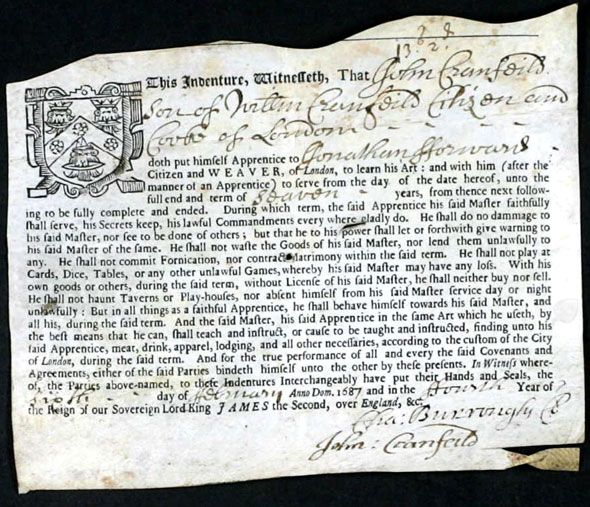 13 . 2 .
This Indenture, Witnesseth, That John Cranfeild
Son of Willm Cranfeild Citizen and
Cooke of London
doth put himself Apprentice to Jonathan fforward
Citizen and WEAVER, of London, to learn his Art: and with him (after the
manner of an Apprentice) to serve from the day of the date hereof, unto the
full end and term of Seaven years, from thence next follow-
ing to be fully complete and ended. During which term, the said Apprentice his said Master faithfully
shall serve, his Secrets keep, his lawful Commandments every where gladly do. He shall do no damage to
his said Master, nor see to be done of others; but that he to his power shall let or forthwith give warning to
his said Master of the same. He shall not waste the Goods of his said Master, nor lend them unlawfully to
any. He shall not commit Fornication, nor contract Matrimony within the said term. He shall not play at
Cards, Dice, Tables, or any other unlawful Games, whereby his said Master may have any loss. With his
own goods or others, during the said term, without License of his said Master, he shall neither buy nor sell.
He shall not haunt Taverns or Play-houses, nor absent himself from his said Master service day or night
unlawfully: But in all things as a faithful Apprentice, he shall behave himself towards his said Master, and
all his, during the said term. And the said Master, his said Apprentice in the same Art which he useth, by
the best means that he can, shall teach and instruct, or cause to be taught and instructed, finding unto his
said Apprentice, meat, drink, apparel, lodging, and all other necessaries, according to the custom of the City
of London, during the said term. And for the true performance of all and every the said Covenants and
Agreements, either of the said Parties bindeth himself unto the other by these presents. In Witness where-
of, the Parties above-named, to these Indentures Interchangeably have put their Hands and Seals, the
day of ffebruary Anno Dom. 1687 and in the ffourth Year of
the Reign of our Sovereign Lord King JAMES the Second, over England, &c.
Cha: Burroughs
John: Cranfeild